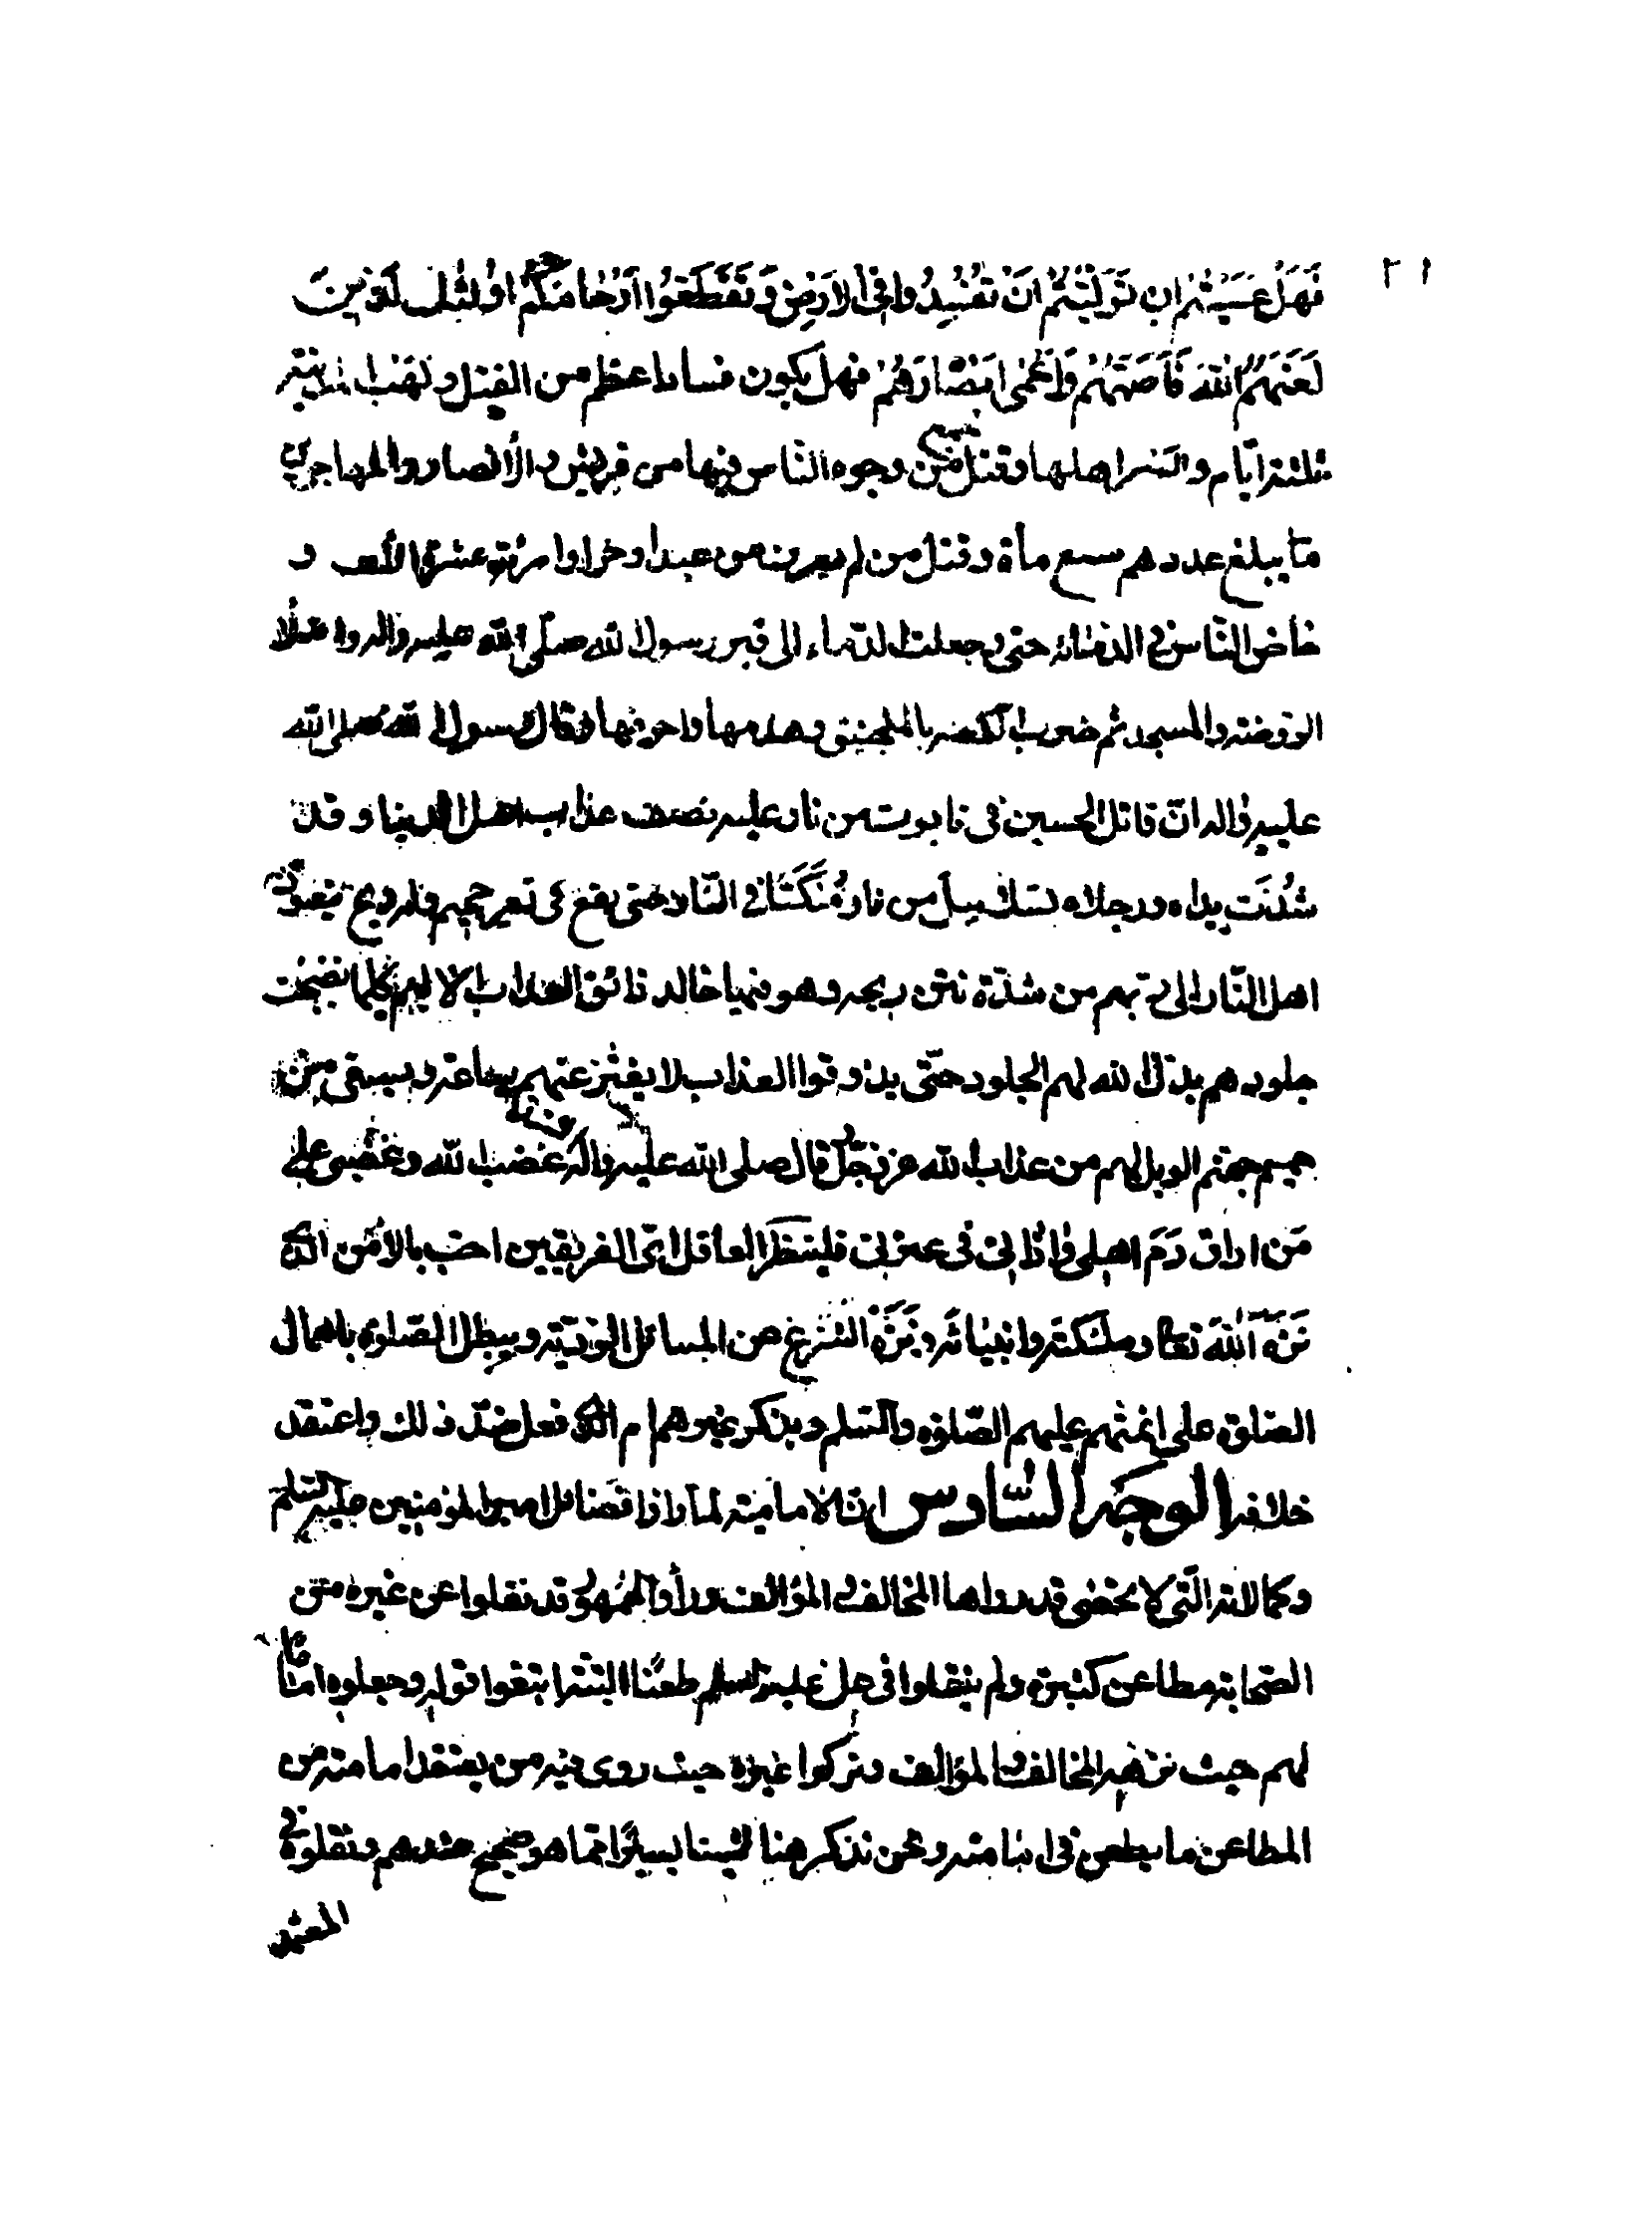 ٢١
فَهَلْ عَسَيْتُمْ اِن تَوَلَّيْتُمْ اَنْ تُفْسِدُوا فِي الاَرْضِ وَ تُقَطِّعُوا اَرْحٰامَكُمْ اُولٰئِكَ الَّذينَ
لَعَنَهُمُ اللهُ فَاَصَمَّهُمْ وَاَعْمٰى اَبْصٰارَهُمْ فهل يكون فساد اعظم من القتل و نهب المدينة
ثلثة ايّام و اهلها و قتل جمع من وجوه الناس فيها من قريش و الأنصار و المهاجرين
ما يبلغ عددهم سبع مأة و قتل من لم يعرف من عبد او حر او امرأة عشرة الآف و
خاض النّاس في الدّماء حتى وصلت الدّماء الى قبر رسول الله صلّى الله عليه واله وامتلأ
الرّوضة والمسجد ثم ضرب الكعبة بالمنجنيق وهدمها واحرقها وقال رسول الله صلى الله
عليه واله انّ قاتل الحسين في تابوت من نار عليه نصف عذاب اهل الدنيا وقد
شُدّت يداه ورجلاه بسلاسل من نار مُنَكَّسًا في النّار حتى يقع في قعر جهنم وله ريح يتعوّذ
اهل النّار الى ربهم من شدّة نتن ريحه وهو فيها خالد ذائق العذاب الاليم كلما نضجت
جلودهم بدّل الله لهم الجلود حتّى يذوقوا العذاب لا يفتر عنهم ساعة ويسقى من
حميم جهنّم الويل لهم من عذاب الله عزّ وجلّ وقال صلى الله عليه واله اشتد غضب الله وغضبى على
مَن اراق دَمَ اهلى واذانى في عترتى فلينظر العاقل اىّ الفريقين احق بالأمن الذى
نَزَّهَ اللهَ تعالى وملئكته وانبيائه ونزّه الشرع عن المسائل الرّديّة ويبطل الصّلوة باهمال
الصّلوة على ائمّتهم عليهم الصّلوة والسّلم ويذكر غيرهم ام الذى فعل ضدّ ذلك واعتقد
خلافه الوجه السّادس انّ الامامية لما رأوا فضائل امير المؤمنين عليه السّلم
وكمالاته الّتى لا تحصٰى قد رواها المخالف و المؤالف ورأوا الجمهور قد نقلوا عن غيره من
الصّحابة مطاعن كثيرة ولم ينقلوا في على عليه السلم طعنًا البتّة اتبعوا قوله وجعلوه امامًا
لهم حيث نزّهه المخالف و المؤالف وتركوا غيره حيث روى فيه من يعتقد امامته من
المطاعن ما يطعن في امامته ونحن نذكر هنا شيئا يسيرًا ممّا هو صحيح عندهم ونقلوه في
المعتمد